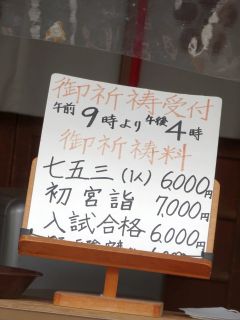 御祈祷受付
午前9時より午後4時
御祈祷料
七五三(1人) 6,000円
初宮詣 7,000円
入試合格 6,000円